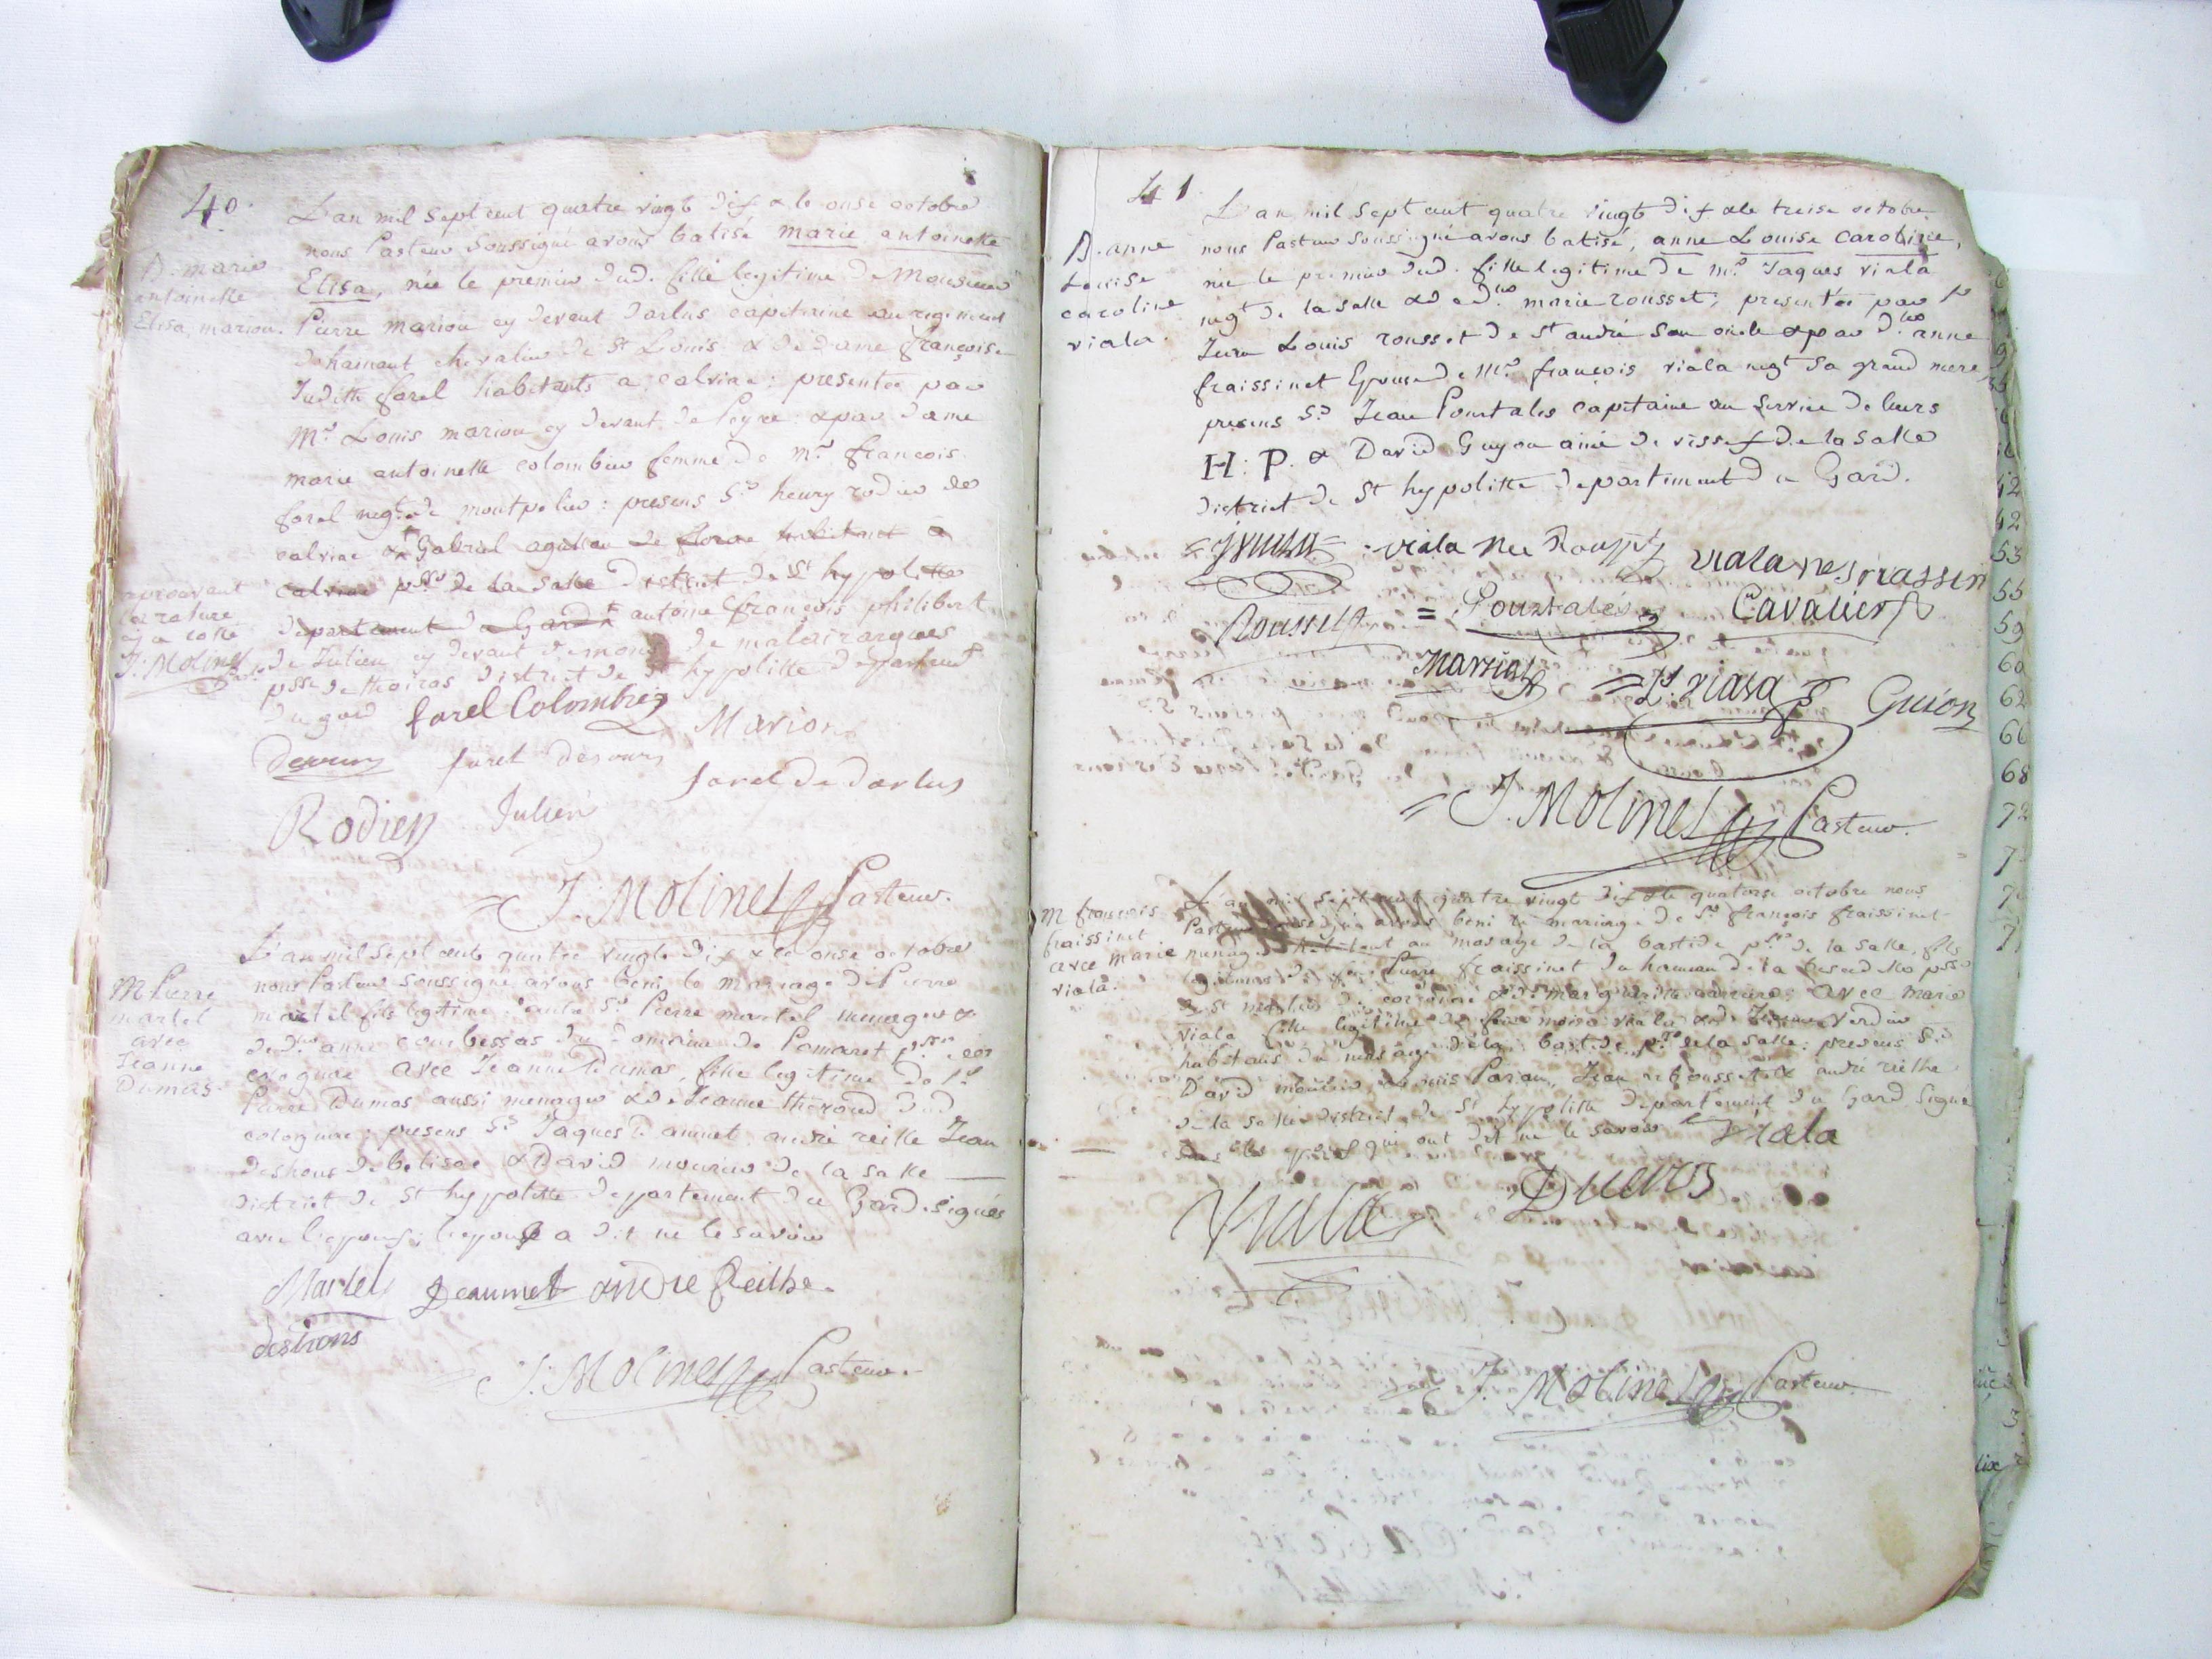 40.
B. marie
antoinette
Elisa, marion.
L'an mil sept cent quatre vingt dix & le onse octobre
nous Pasteur soussigné avons batisé marie antoinette
Elisa, née le premier dud. fille legitime de Monsieur
Pierre marion cy devant darlus capitaine au regiment
dehainaut chevalier de St Louis & de dame françoise
Judith farel habitants a calviac: presentée par
Mr. Louis marion cy devant de Peyre: & par dame
marie antoinette colombier femme de mr. francois
farel negt. de montpelier: presens Sr. henry rodier de
calviac & Gabriel de florac habitant a
calviac psse de la salle District de St hypolitte
departement du Gard antoine françois philibert
de Julien cy devant de mons de malairargues
psse de thoiras district de St hypolitte departemt
du gard
aprouvant
la rature
cy a coté
J. Molines
farel Colombier
Marion
Desours
farel desours
farel de darlus
Rodier
Julien
= J. Molines Pasteur.
M Pierre
martel
avec
Jeanne
Dumas.
L'an mil sept cent quatre vingt dix & le onse octobre
nous Pasteur soussigné avons beni le mariage de Pierre
martel fils legitime d'autre Sr. Pierre martel menager &
de dlle anne combessas du domaine de Pomaret psse de
cologniac avec Jeanne Dumas, fille legitime de Sr
Pierre Dumas aussi menager & de Jeanne theroud dud
cologniac: presens Sr. Jaques Deaumet, andré reilhe Jean
deshons & David mourier de la salle
district de St hypolitte departement du Gard. signés
avec l'epoux; l'epouse a dit ne le savoir
Martel
Deaumet
andre Reilhe.
deshons
J. Molines Pasteur.
41
B. anne
Louise
caroline
viala.
L'an mil sept cent quatre vingt dix & le treise octobre
nous Pasteur soussigné avons batisé, anne Louise caroline,
née le premier dud. fille legitime de mr. Jaques viala
negt de la salle & de dlle marie rousset; presentée par Sr
Jean Louis rousset de St andré son oncle & par dlle anne
fraissinet Epouse de Mr. françois viala negt sa grand mere,
presens Sr. Jean Pourtales capitaine au service de leurs
H: P. & David Guyon ainé de vissef de la salle
district de St hypolitte departement du Gard.
viala Née Rousset
viala née fraissin
Rousset
= Pourtalés
Cavalier
Martial
= Ls. viala
Guion
= J. Molines Pasteur.
M françois
fraissinet
avec marie
viala.
L'an mil sept cent quatre vingt dix & le quatorse octobre nous
Pasteur soussigné avons beni le mariage de Sr. françois fraissinet
menager habitant au masage de la bastide psse de la salle, fils
legitime de feu Pierre fraissinet du hameau de la psse
de St & de marguerite avec marie
viala fille legitime de feu moise viala & de Jeanne verdier
habitans du masage de la bastide psse de la salle: presens Sr.
David mourier, Louis Jean & andré reilhe
de la salle district de St hypolitte departement du Gard signé
qui ont dit ne le savoir
Viala
Viala
= J. Molines Pasteur.